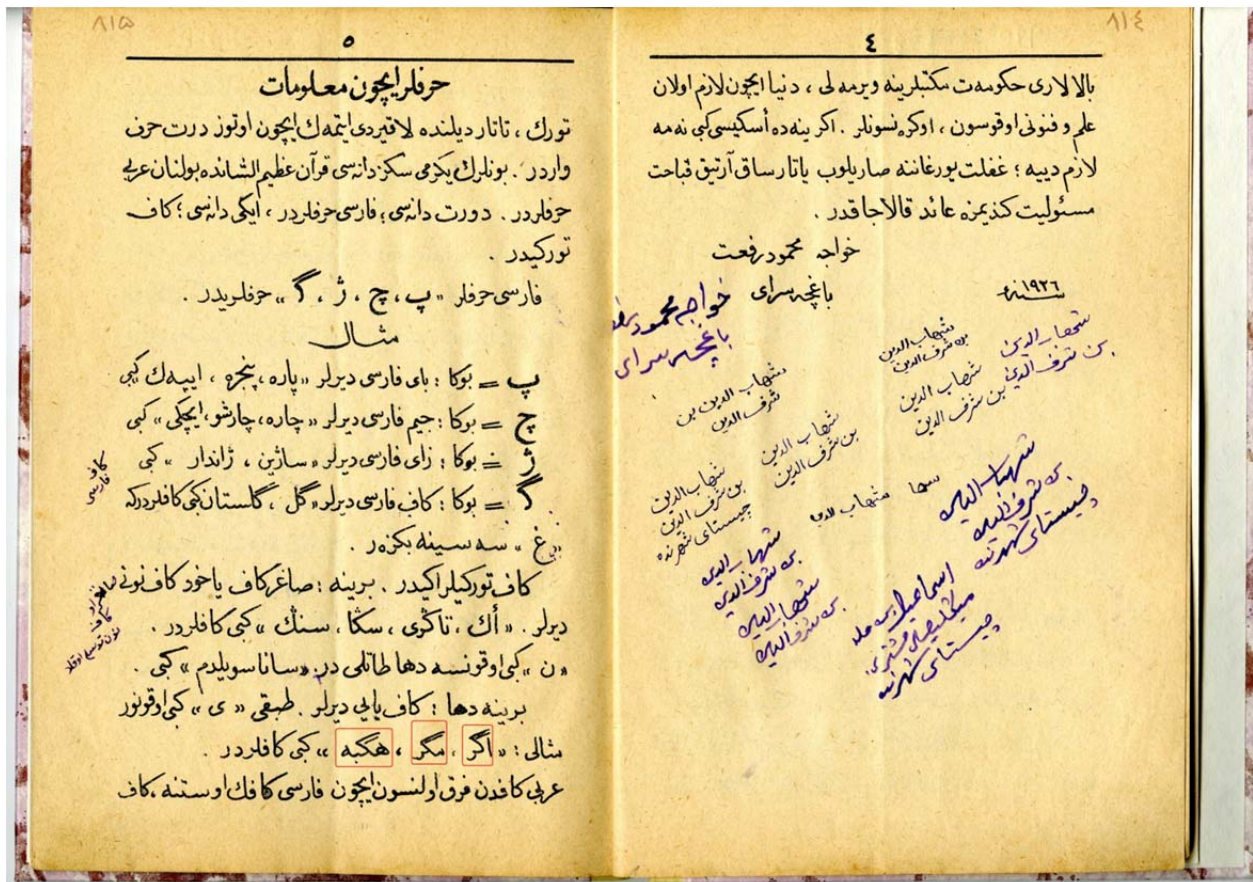 ٨١٤
٤
بالا لاری حکومه‌ت مکتبلرینه ویرمه لی ، دنیا ایچون لازم اولان
علم و فنونی اوقوسون ، اوکره نسونلر . اکر ینه ده أسکیسی کبی نه مه
لازم دییه ؛ غفلت یورغاننه صاریلوب یاتارساق آرتیق قباحت
مسئولیت کندیمزه عائد قالاجاقدر .
خواجه محمود رفعت
باغچه سرای
سنهٔ ١٩٢٦
خواجه محمود
باغچه سرای
شهاب الدین
بن شرف الدین
شهاب الدین
بن شرف الدین
شهاب الدین
بن شرف الدین
شهاب الدین بن
شرف الدین
شهاب الدین
بن شرف الدین
شهاب الدین
بن شرف الدین
چیستای شهرنده
شهاب الدین
بن شرف الدین
چیستای شهرنده
شهاب الدین
بن شرف الدین
شهاب الدین
بن شرف الدین
چیستای شهرنده
٨١٥
٥
حرفلر ایچون معلومات
تورك ، تاتار دیلنده لاقیردی ایتمه‌ك ایچون اوتوز درت حرف
واردر . بونلرك یکرمی سکز دانه‌سی قرآن عظیم الشانده بولنان عربی
حرفلردر . دورت دانه‌سی ؛ فارسی حرفلردر ، ایکی دانه‌سی ؛ کاف
تورکیدر .
فارسی حرفلر « پ ، چ ، ژ ، گ » حرفلریدر .
مثال
پ = بوکا : بای فارسی دیرلر « پاره ، پنجره ، ایپه‌ك کبی
چ = بوکا : جیم فارسی دیرلر « چاره ، چارشو ، ایچکی » کبی
ژ = بوکا : زای فارسی دیرلر « ساژین ، ژاندار » کبی
گ = بوکا : کاف فارسی دیرلر « گل ، گلستان کبی کافلردرکه
« غ » سه سینه بکزه‌ر .
کاف تورکیلر ایکیدر . برینه : صاغر کاف یاخود کاف نونی
دیرلر . « أڭ ، تاڭری ، سڭا ، سنڭ » کبی کافلردر .
« ن » کبی اوقونسه دها طاتلی در « سانا سویلدم » کبی .
برینه دها : کاف یایی دیرلر . طبقی « ی » کبی اوقونور
مثالی : « اگر ، مگر ، هگبه » کبی کافلردر .
عربی کافدن فرق اولنسون ایچون فارسی کافك اوستنه ، کاف
کاف
فارسی